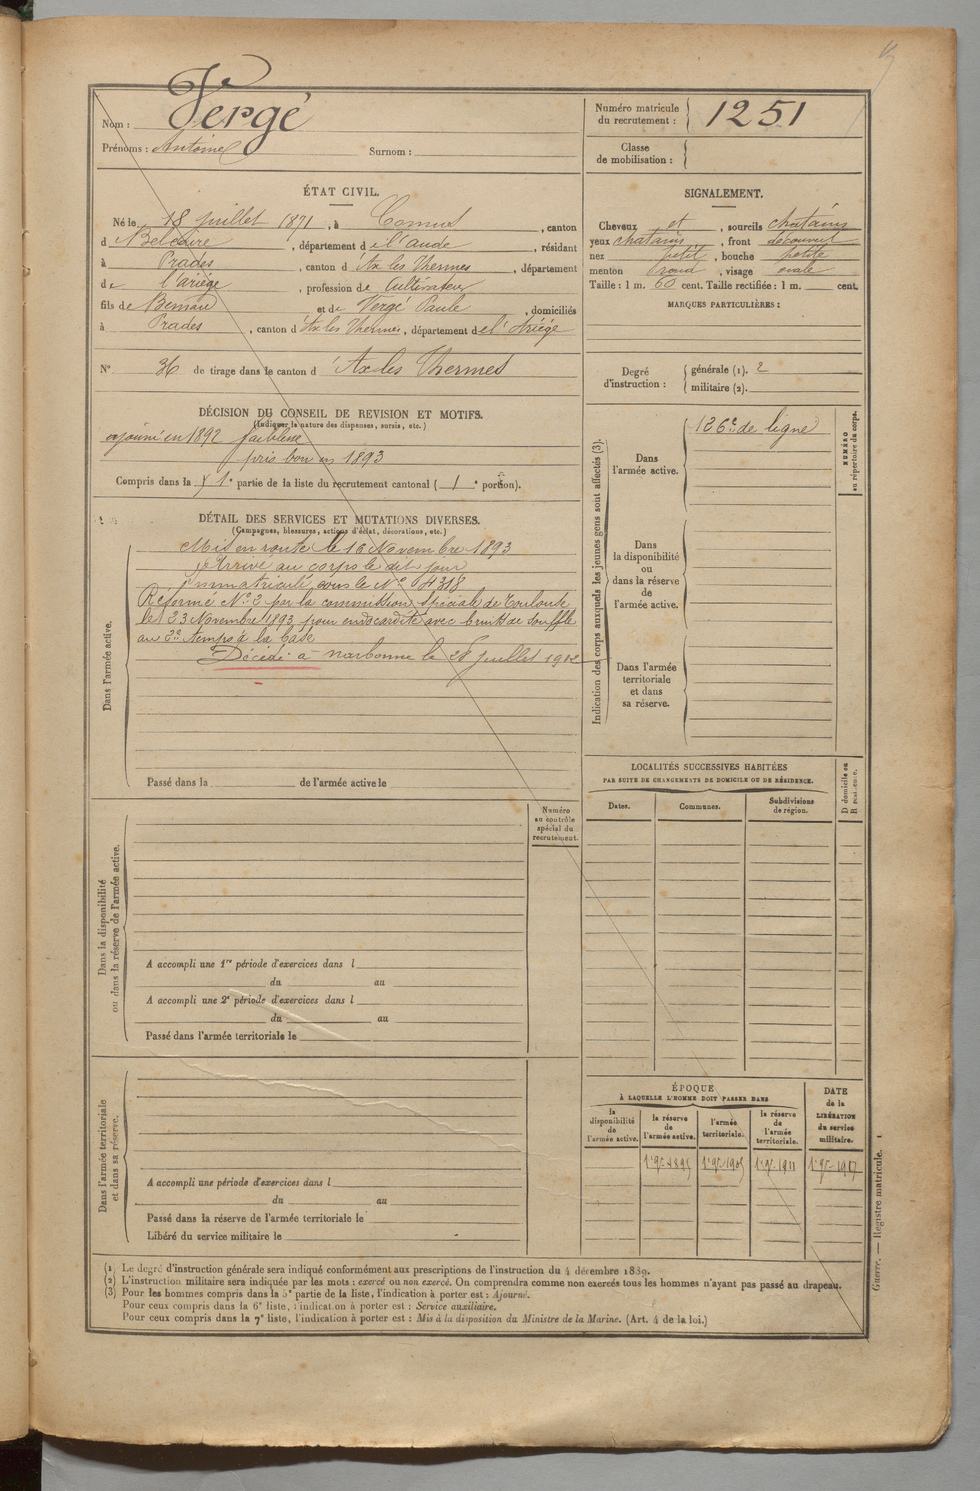 Nom : Vergé
Prénoms : Antoine Surnom :
Numéro matricule du recrutement : 1251
Classe de mobilisation :
ÉTAT CIVIL.
Né le 18 juillet 1871, à Comus, canton
d Belcaire, département de l'aude, résidant
à Prades, canton d'Ax les Thermes, département
de l'ariège, profession de Cultivateur
fils de Bernard et de Vergé Paule, domiciliés
à Prades, canton d'Ax les Thermes, département de l'Ariège
N° 36 de tirage dans le canton d'Ax les Thermes
SIGNALEMENT.
Cheveux et, sourcils chatains
yeux chatains, front découvert
nez petit, bouche petite
menton rond, visage ovale
Taille : 1 m. 60 cent. Taille rectifiée : 1 m. cent.
MARQUES PARTICULIÈRES :
Degré d'instruction : générale (1). 2
militaire (2).
DÉCISION DU CONSEIL DE REVISION ET MOTIFS.
(Indiquer la nature des dispenses, sursis, etc.)
ajourné en 1892 faiblesse
pris bon en 1893
Compris dans la 1e partie de la liste du recrutement cantonal ( 1e portion).
DÉTAIL DES SERVICES ET MUTATIONS DIVERSES.
(Campagnes, blessures, actions d'éclat, décorations, etc.)
Dans l'armée active.
Mis en route le 16 Novembre 1893
Arrivé au corps le dit jour
immatriculé sous le N° 4318
Réformé N° 2 par la commission spéciale de Toulouse
le 23 Novembre 1893 pour endocardite avec bruit de souffle
au 2e temps à la base
Décédé à narbonne le 28 juillet 1912
Passé dans la de l'armée active le
Indication des corps auxquels les jeunes gens sont affectés (3).
Dans l'armée active.
126e de ligne
Dans la disponibilité ou dans la réserve de l'armée active.
Dans l'armée territoriale et dans sa réserve.
NUMÉRO au répertoire du corps.
LOCALITÉS SUCCESSIVES HABITÉES
PAR SUITE DE CHANGEMENTS DE DOMICILE OU DE RÉSIDENCE.
Dates. Communes. Subdivisions de région.
D domicile ou R résidence.
Numéro au contrôle spécial du recrutement.
Dans la disponibilité ou dans la réserve de l'armée active.
A accompli une 1re période d'exercices dans l
du au
A accompli une 2e période d'exercices dans l
du au
Passé dans l'armée territoriale le
Dans l'armée territoriale et dans sa réserve.
A accompli une période d'exercices dans l
du au
Passé dans la réserve de l'armée territoriale le
Libéré du service militaire le
ÉPOQUE
À LAQUELLE L'HOMME DOIT PASSER DANS
la disponibilité de l'armée active.
la réserve de l'armée active.
l'armée territoriale.
la réserve de l'armée territoriale.
DATE de la LIBÉRATION du service militaire.
1er 9bre 1895 1er 9bre 1905 1er 9bre 1911 1er 9bre 1917
(1) Le degré d'instruction générale sera indiqué conformément aux prescriptions de l'instruction du 4 décembre 1889.
(2) L'instruction militaire sera indiquée par les mots : exercé ou non exercé. On comprendra comme non exercés tous les hommes n'ayant pas passé au drapeau.
(3) Pour les hommes compris dans la 5e partie de la liste, l'indication à porter est : Ajourné.
Pour ceux compris dans la 6e liste, l'indication à porter est : Service auxiliaire.
Pour ceux compris dans la 7e liste, l'indication à porter est : Mis à la disposition du Ministre de la Marine. (Art. 4 de la loi.)
Guerre. — Registre matricule. 1